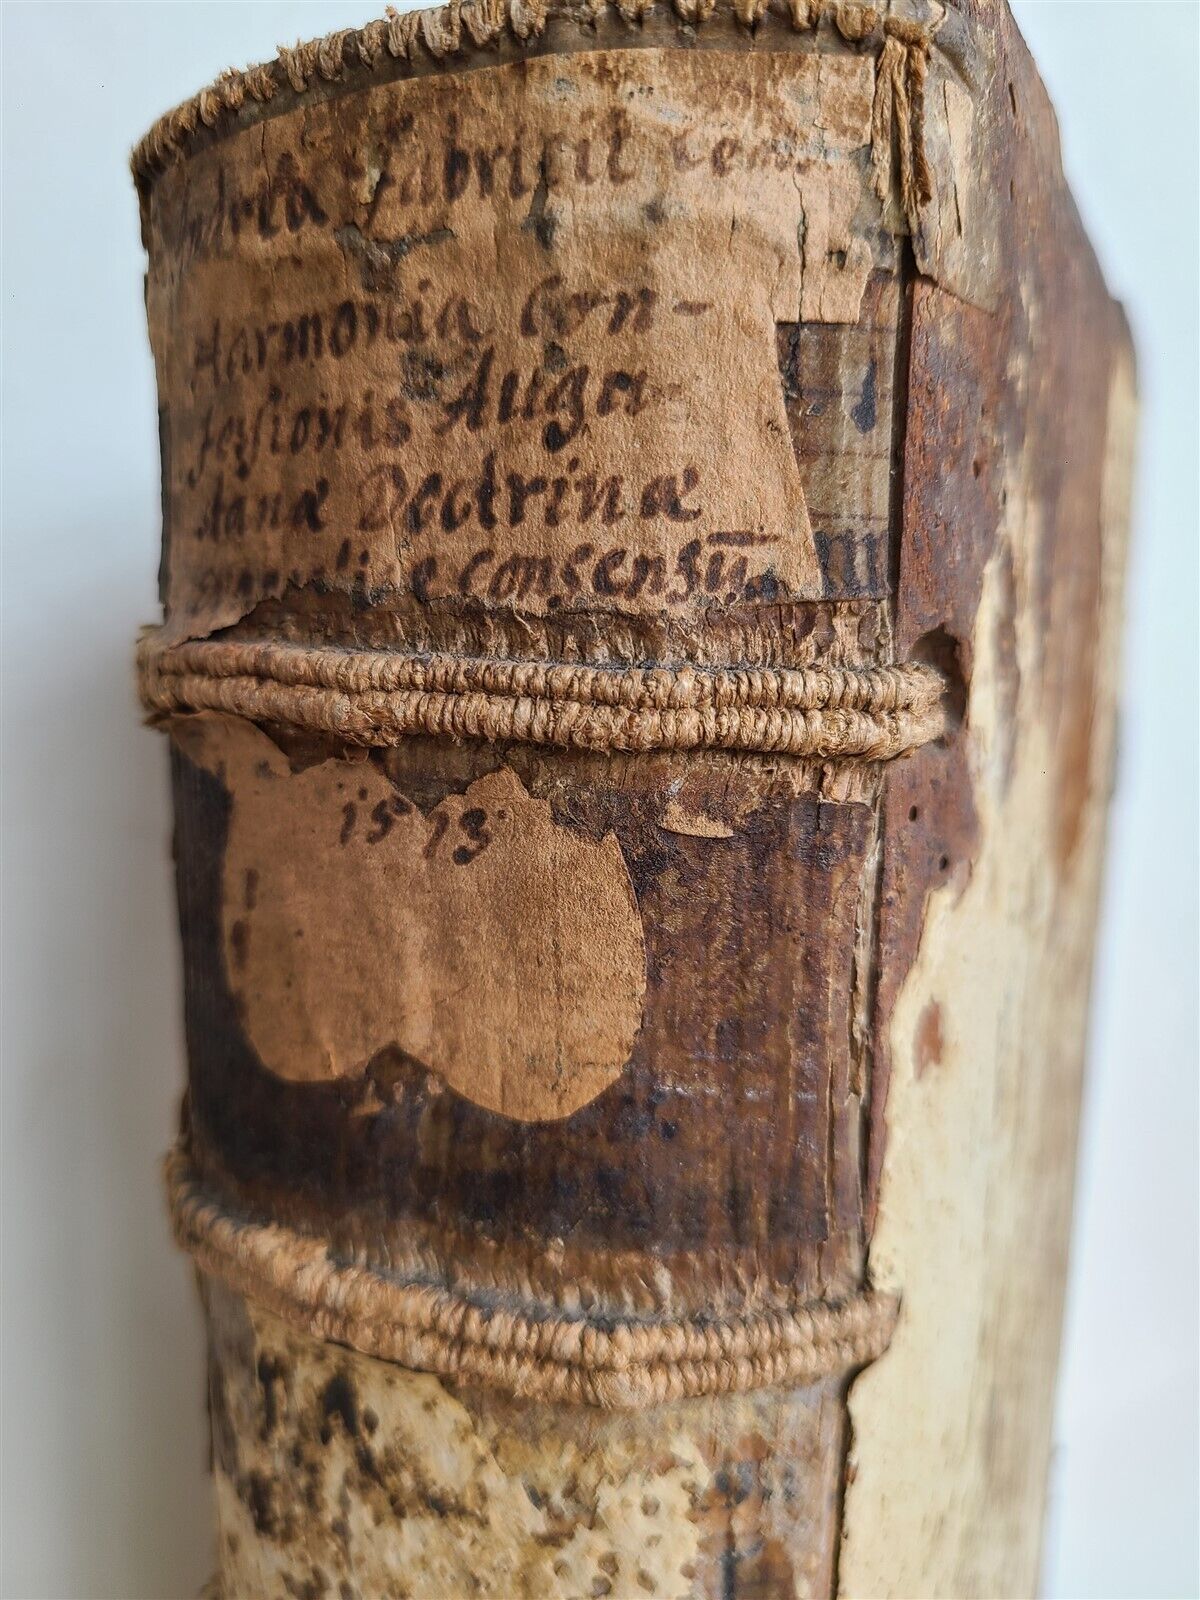 Fabricii
Harmonia Con-
fessionis Augu-
stanæ Doctrinæ
consensū
1573